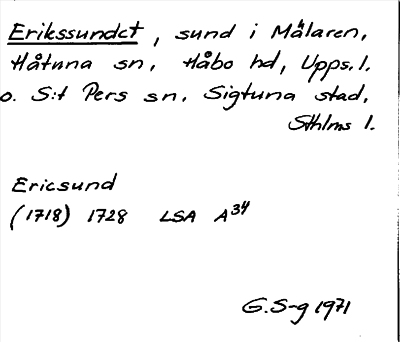 Erikssundet, sund i Mälaren,
Håtuna sn, Håbo hd, Upps. l.
o. S:t Pers sn, Sigtuna stad,
Sthlms l.
Ericsund
(1718) 1728 LSA A34
G. S-g 1971